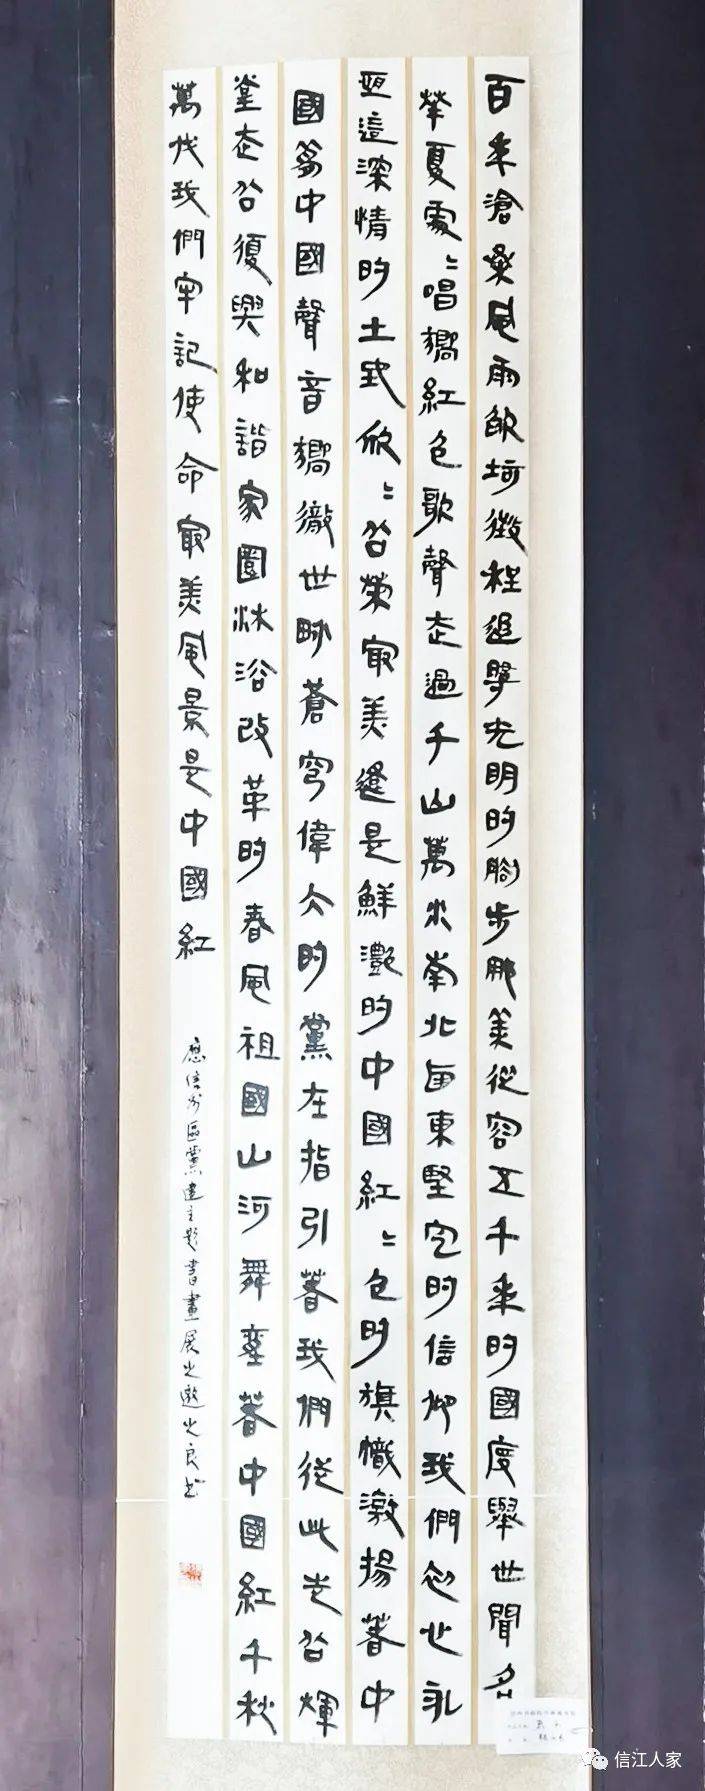 百年滄桑風雨欿坷徵程追尋光明的腳步那美從容五千年的國度舉世聞名
華夏處〻唱響紅色歌聲走過千山萬水南北西東堅定的信仰我們永
恆這深情的土地欣〻向榮最美還是鮮艷的中國紅〻色的旗幟激揚著中
國夢中國聲音響徹世界蒼穹偉大的黨在指引著我們從此走向輝
煌走向復興和諧家園沐浴改革的春風祖國山河舞動著中國紅千秋
萬代我們牢記使命最美風景是中國紅
應信州區黨建主題書畫展之邀之良書
信江人家